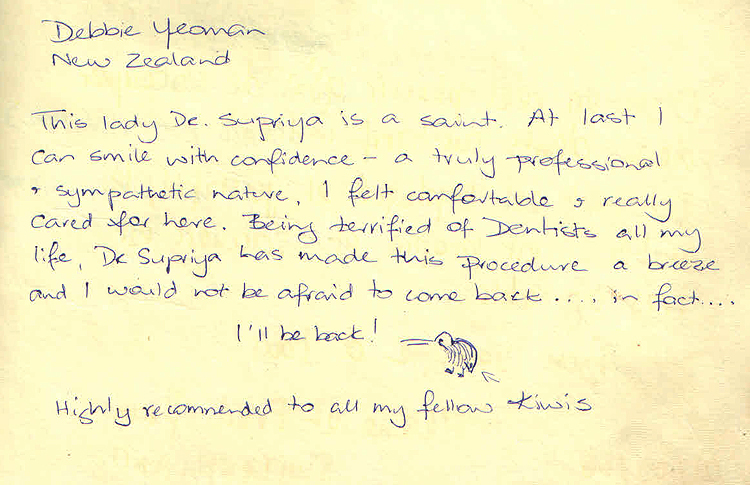 Debbie Yeoman
New Zealand
This lady Dr. Supriya is a saint. At last I
can smile with confidence – a truly professional
& sympathetic nature, I felt comfortable & really
cared for here. Being terrified of Dentists all my
life, Dr Supriya has made this procedure a breeze
and I would not be afraid to come back .... in fact....
I'll be back!
Highly recommended to all my fellow Kiwis